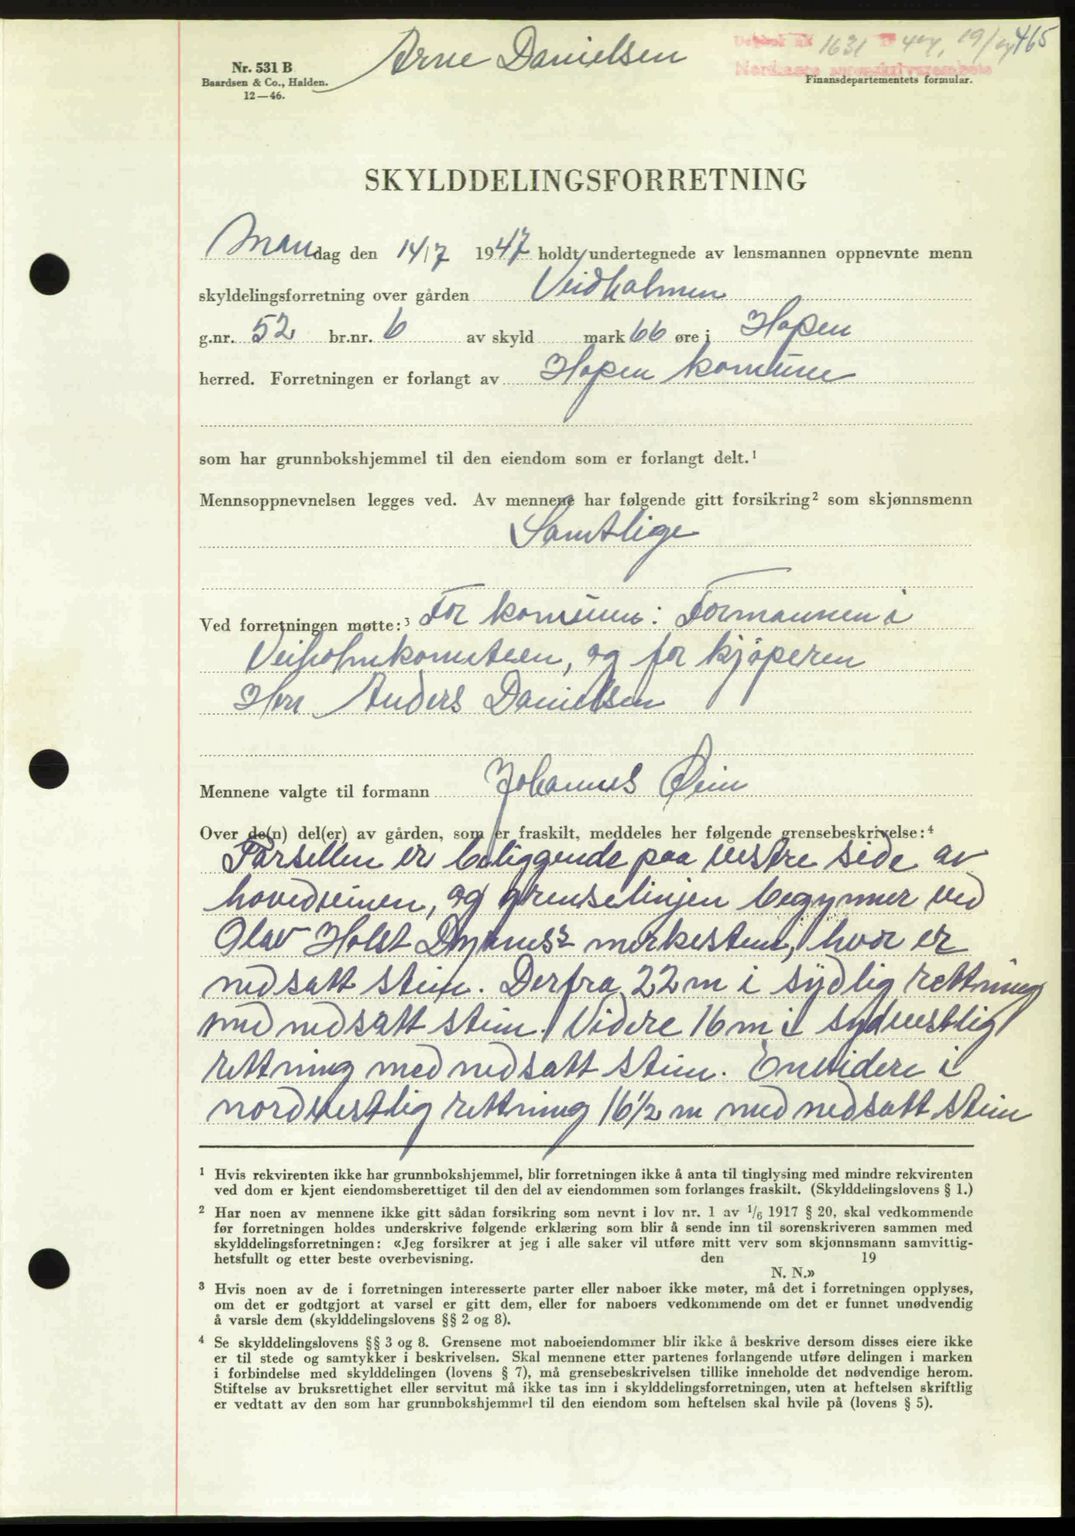 Arne Danielsen
Dagbok nr. 1631 19 47, 19/ 465
Nordmøre sorenskriverembete
Nr. 531 B
Baardsen & Co., Halden.
12—46.
Finansdepartementets formular.
SKYLDDELINGSFORRETNING
Mandag den 14/7 1947 holdt undertegnede av lensmannen oppnevnte menn
skyldelingsforretning over gården Veidholmen
g.nr. 52 br.nr. 6 av skyld mark 66 øre i Hopen
herred. Forretningen er forlangt av Hopen komune
som har grunnbokshjemmel til den eiendom som er forlangt delt.¹
Mennsoppnevnelsen legges ved. Av mennene har følgende gitt forsikring² som skjønnsmenn
Samtlige
Ved forretningen møtte:³ For komunen: Formannen i
Veiholmkomiteen, og for kjøperen
Herr Anders Danielsen
Mennene valgte til formann Johannes Øien
Over de(n) del(er) av gården, som er fraskilt, meddeles her følgende grensebeskrivelse:⁴
Parsellen er beliggende paa vestre side av
hovedveien, og grenselinjen begynner ved
Olav Holst merkestein, hvor er
nedsatt stein. Derfra 22 m i sydlig rettning
med nedsatt stein. Videre 16 m i sydvestlig
rettning med nedsatt stein. Envidere i
nordvestlig rettning 16½ m med nedsatt stein
¹ Hvis rekvirenten ikke har grunnbokshjemmel, blir forretningen ikke å anta til tinglysing med mindre rekvirenten
ved dom er kjent eiendomsberettiget til den del av eiendommen som forlanges fraskilt. (Skylddelingslovens § 1.)
² Har noen av mennene ikke gitt sådan forsikring som nevnt i lov nr. 1 av ¹/₆ 1917 § 20, skal vedkommende
før forretningen holdes underskrive følgende erklæring som blir å sende inn til sorenskriveren sammen med
skylddelingsforretningen: «Jeg forsikrer at jeg i alle saker vil utføre mitt verv som skjønnsmann samvittig-
hetsfullt og etter beste overbevisning. den 19
N. N.»
³ Hvis noen av de i forretningen interesserte parter eller naboer ikke møter, må det i forretningen opplyses,
om det er godtgjort at varsel er gitt dem, eller for naboers vedkommende om det er funnet unødvendig
å varsle dem (skylddelingslovens §§ 2 og 8).
⁴ Se skylddelingslovens §§ 3 og 8. Grensene mot naboeiendommer blir ikke å beskrive dersom disses eiere ikke
er til stede og samtykker i beskrivelsen. Skal mennene etter partenes forlangende utføre delingen i marken
i forbindelse med skylddelingen (lovens § 7), må grensebeskrivelsen tillike inneholde det nødvendige herom.
Stiftelse av bruksrettighet eller servitut må ikke tas inn i skylddelingsforretningen, uten at heftelsen skriftlig
er vedtatt av den som har grunnbokshjemmel til den eiendom som heftelsen skal hvile på (lovens § 5).